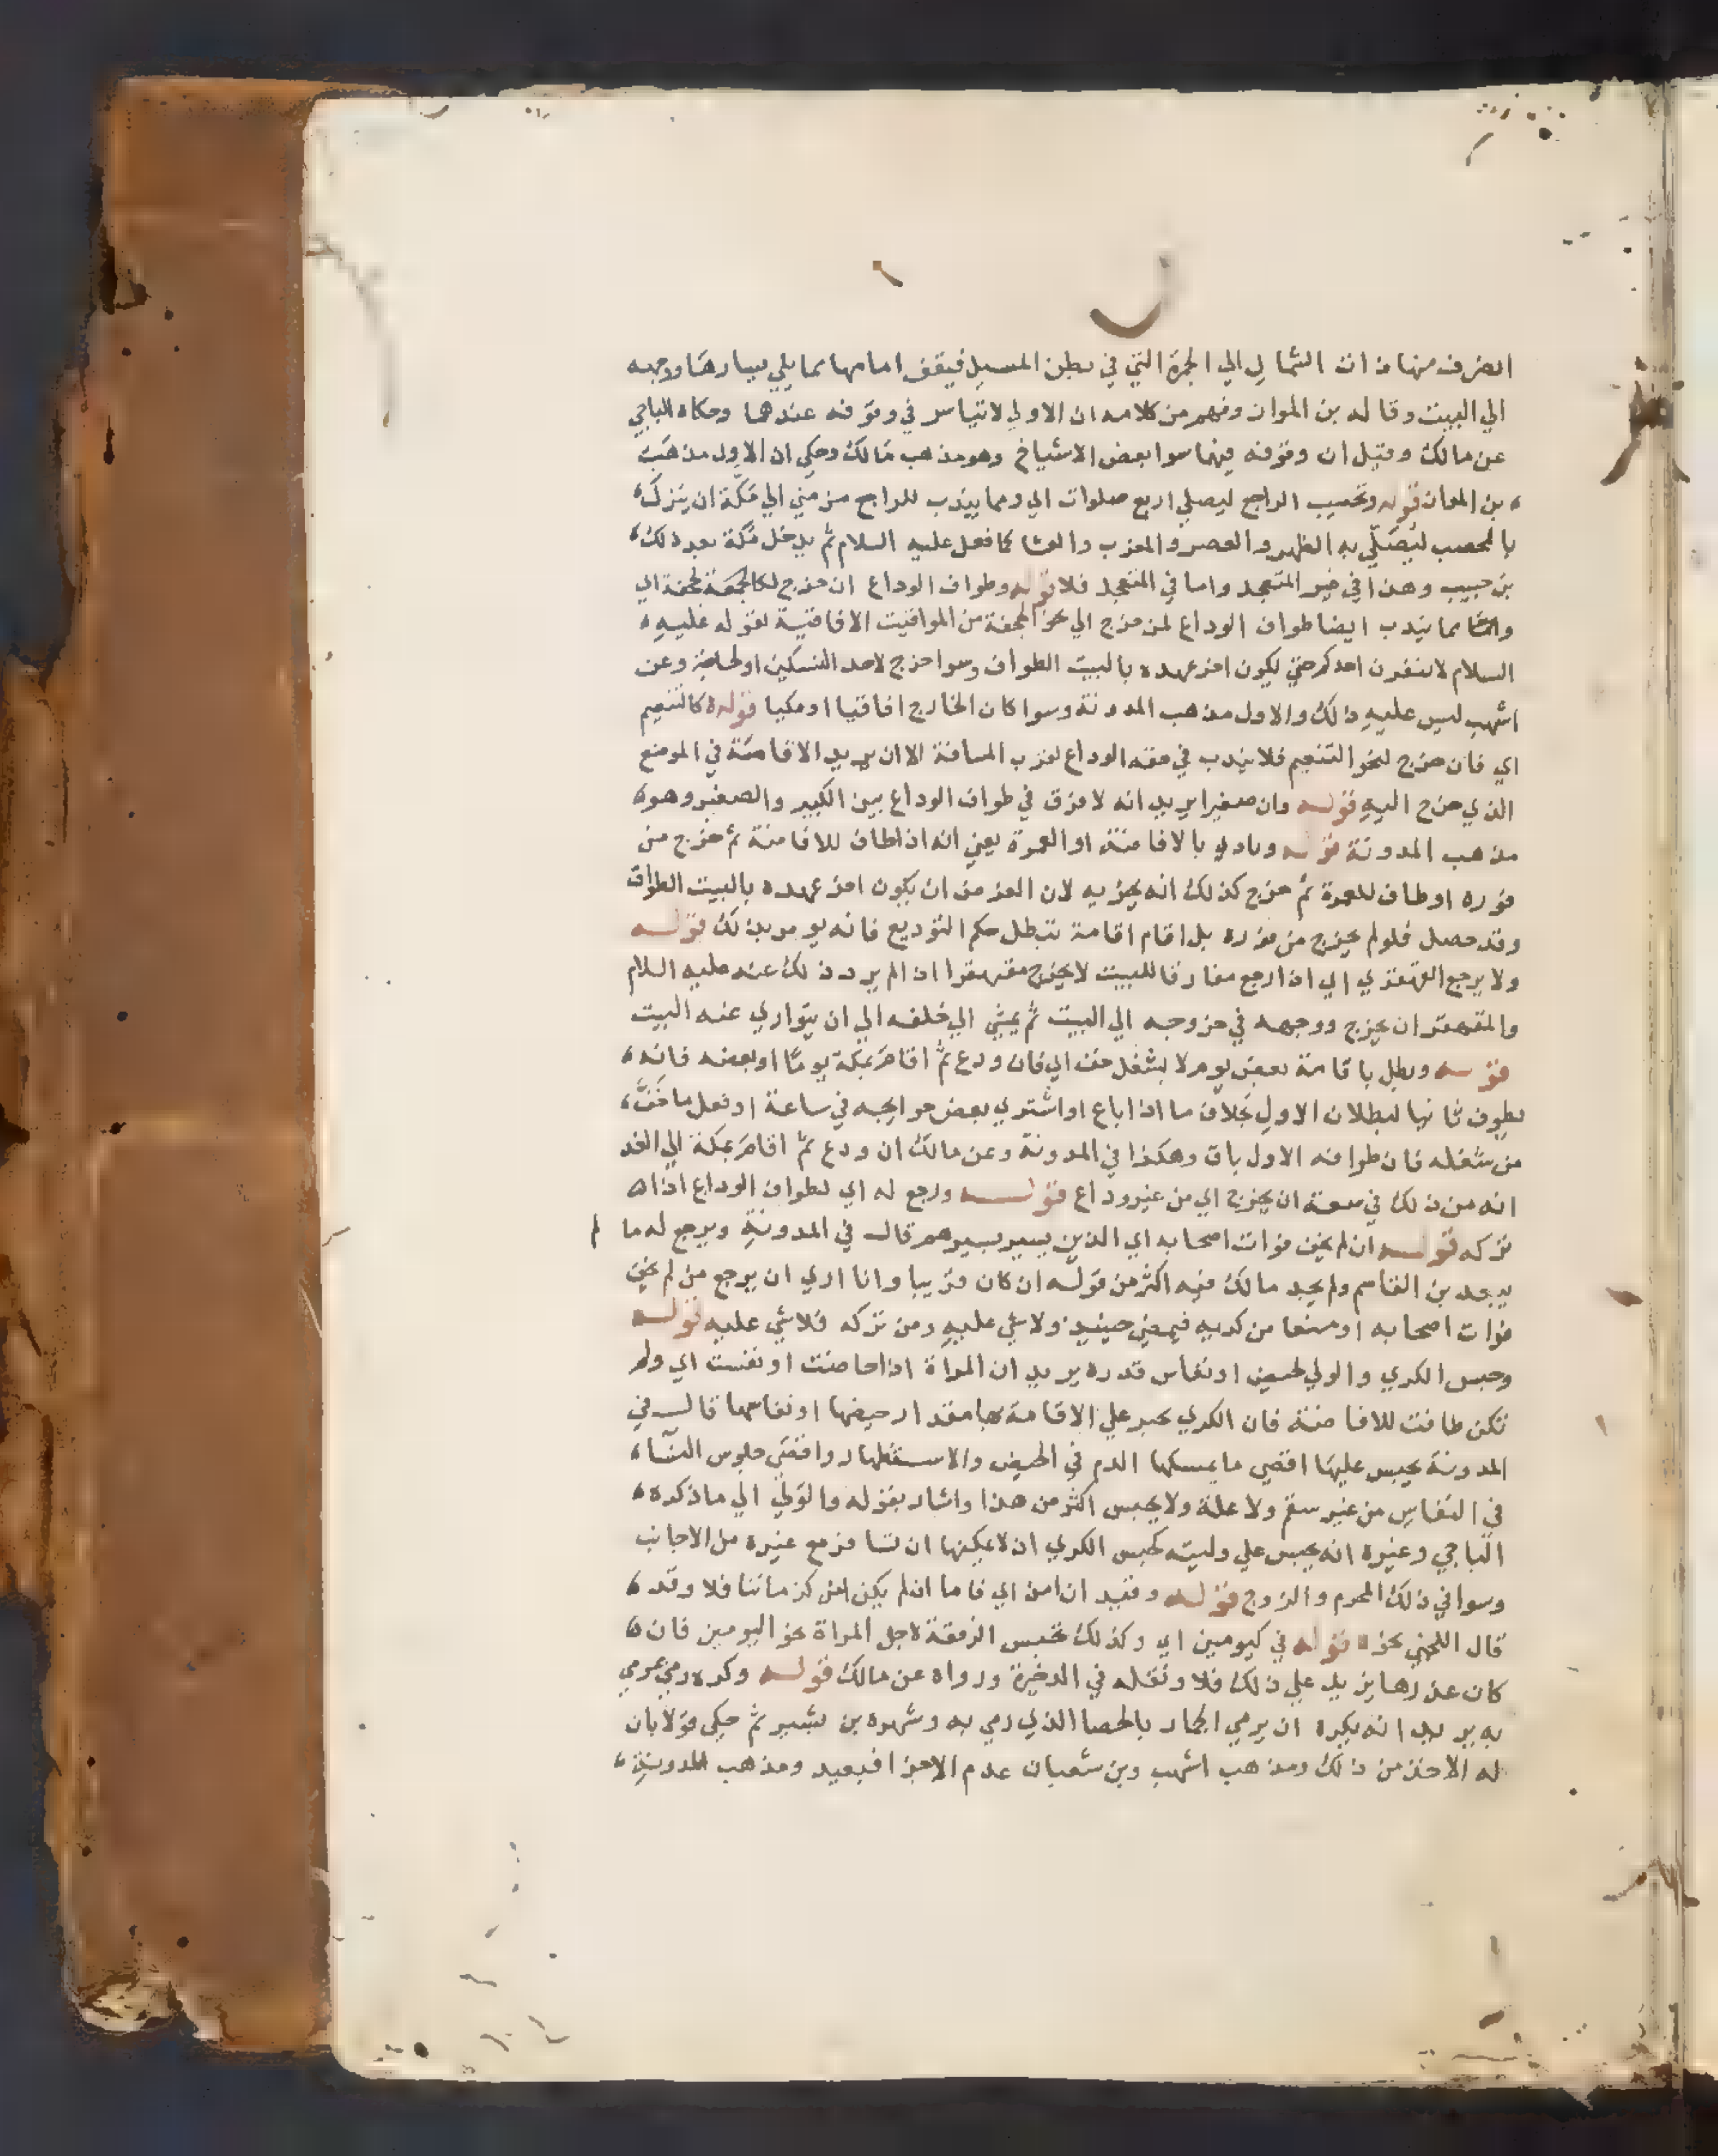 انصرف منها ذات الشمال الي الجمرة التي في بطن المسيل فيقف امامها مما يلي يسارها ووجهه
الي البيت وقاله بن المواز وفهم من كلامه ان الاولي لا تياسر في وقوفه عندهما وحكاه الباجي
عن مالك وقيل ان وقوفه فيهما سوا بعض الاشياخ وهو مذهب مالك وحكي ان الاول مذهب
بن المواز قوله وتحصيب الراجع ليصلي اربع صلوات اي ومما يندب للراجع من مني الي مكة ان ينزل
بالمحصب ليصلي به الظهر والعصر والمغرب والعشا كما فعل عليه السلام ثم يدخل مكة بعد ذلك
بن حبيب وهذا في غير المتعجل واما في المتعجل فلا قوله وطواف الوداع ان خرج لكالجحفة اي
مما يندب ايضا طواف الوداع لمن خرج الي نحو الجحفة من المواقيت الافاقية لقوله عليه
السلام لا ينفرن احدكم حتي يكون اخر عهده بالبيت الطواف وسوا خرج لاحد النسكين او لحاجة وعن
اشهب ليس عليه ذلك والاول مذهب المدونة وسوا كان الخارج افاقيا او مكيا قوله لا كالتنعيم
اي فان خرج لنحو التنعيم فلا يندب في حقه الوداع لقرب المسافة الا ان يريد الاقامة في الموضع
الذي خرج اليه قوله وان صغيرا يريد انه لا فرق في طواف الوداع بين الكبير والصغير وهو
مذهب المدونة قوله وتادي بالافاضة او العمرة يعني انه اذا طاف للافاضة ثم خرج من
فوره او طاف للعمرة ثم خرج كذلك انه يجزيه لان الغرض ان يكون اخر عهده بالبيت الطواف
وقد حصل فلو لم يخرج من فوره بل اقام اقامة تبطل حكم التوديع فانه يومر بذلك قوله
ولا يرجع القهقري اي اذا رجع مفارقا للبيت لا يخرج مقهقرا اذ لم يرد ذلك عنه عليه السلام
والمتقهقر ان يخرج ووجهه في خروجه الي البيت ثم يمشي الي خلفه الي ان يتواري عنه البيت
قوله وبطل باقامة بعض يوم لا بشغل خف اي فان ودع ثم اقام بمكة يوما او بعضه فانه
يطوف ثانيا لبطلان الاول بخلاف ما اذا باع او اشتري بعض حوايجه في ساعة او فعل ما خف
من شغله فان طوافه الاول باق وهكذا في المدونة وعن مالك ان ودع ثم اقام بمكة الي الغد
انه من ذلك في سعة ان يخرج اي من غير وداع قوله ورجع له اي لطواف الوداع اذا
تركه قوله ان لم يخف فوات اصحابه اي الذين يسير بسيرهم قال في المدونة ويرجع له ما لم
يبعد بن القاسم ولم يحد مالك فيه اكثر من قوله ان كان قريبا وانا اري ان يرجع من لم يخف
فوات اصحابه او منعا من كريه فيمضي حينيذ ولا شي عليه ومن تركه فلا شي عليه قوله
وحبس الكري والولي لحيض او نفاس قدره يريد ان المراة اذا حاضت او نفست اي ولم
تكن طافت للافاضة فان الكري يجبر علي الاقامة بها مقدار حيضها او نفاسها قال في
المدونة يحبس عليها اقصي ما يمسكها الدم في الحيض والاستظهار واقصي جلوس النسا
في النفاس من غير سقم ولا علة ولا يحبس اكثر من هذا واشار بقوله والولي الي ما ذكره
الباجي وغيره انه يحبس علي وليته كحبس الكري اذ لا يمكنها ان تسافر مع غيره من الاجانب
وسوا في ذلك المحرم والزوج قوله وقيد ان امن اي فاما ان لم يكن امن كزماننا فلا وقد
قال اللخمي نحوه قوله في كيومين اي وكذلك تحبس الرفقة لاجل المراة نحو اليومين فان
كان عذرها يزيد علي ذلك فلا ونقله في الذخيرة ورواه عن مالك قوله وكره رمي بمرمي
به يريد انه يكره ان يرمي الجمار بالحصا الذي رمي به وشهره بن بشير ثم حكي قولا بان
له الاخذ من ذلك ومذهب اشهب وبن شعبان عدم الاجزا فيعيد ومذهب المدونة